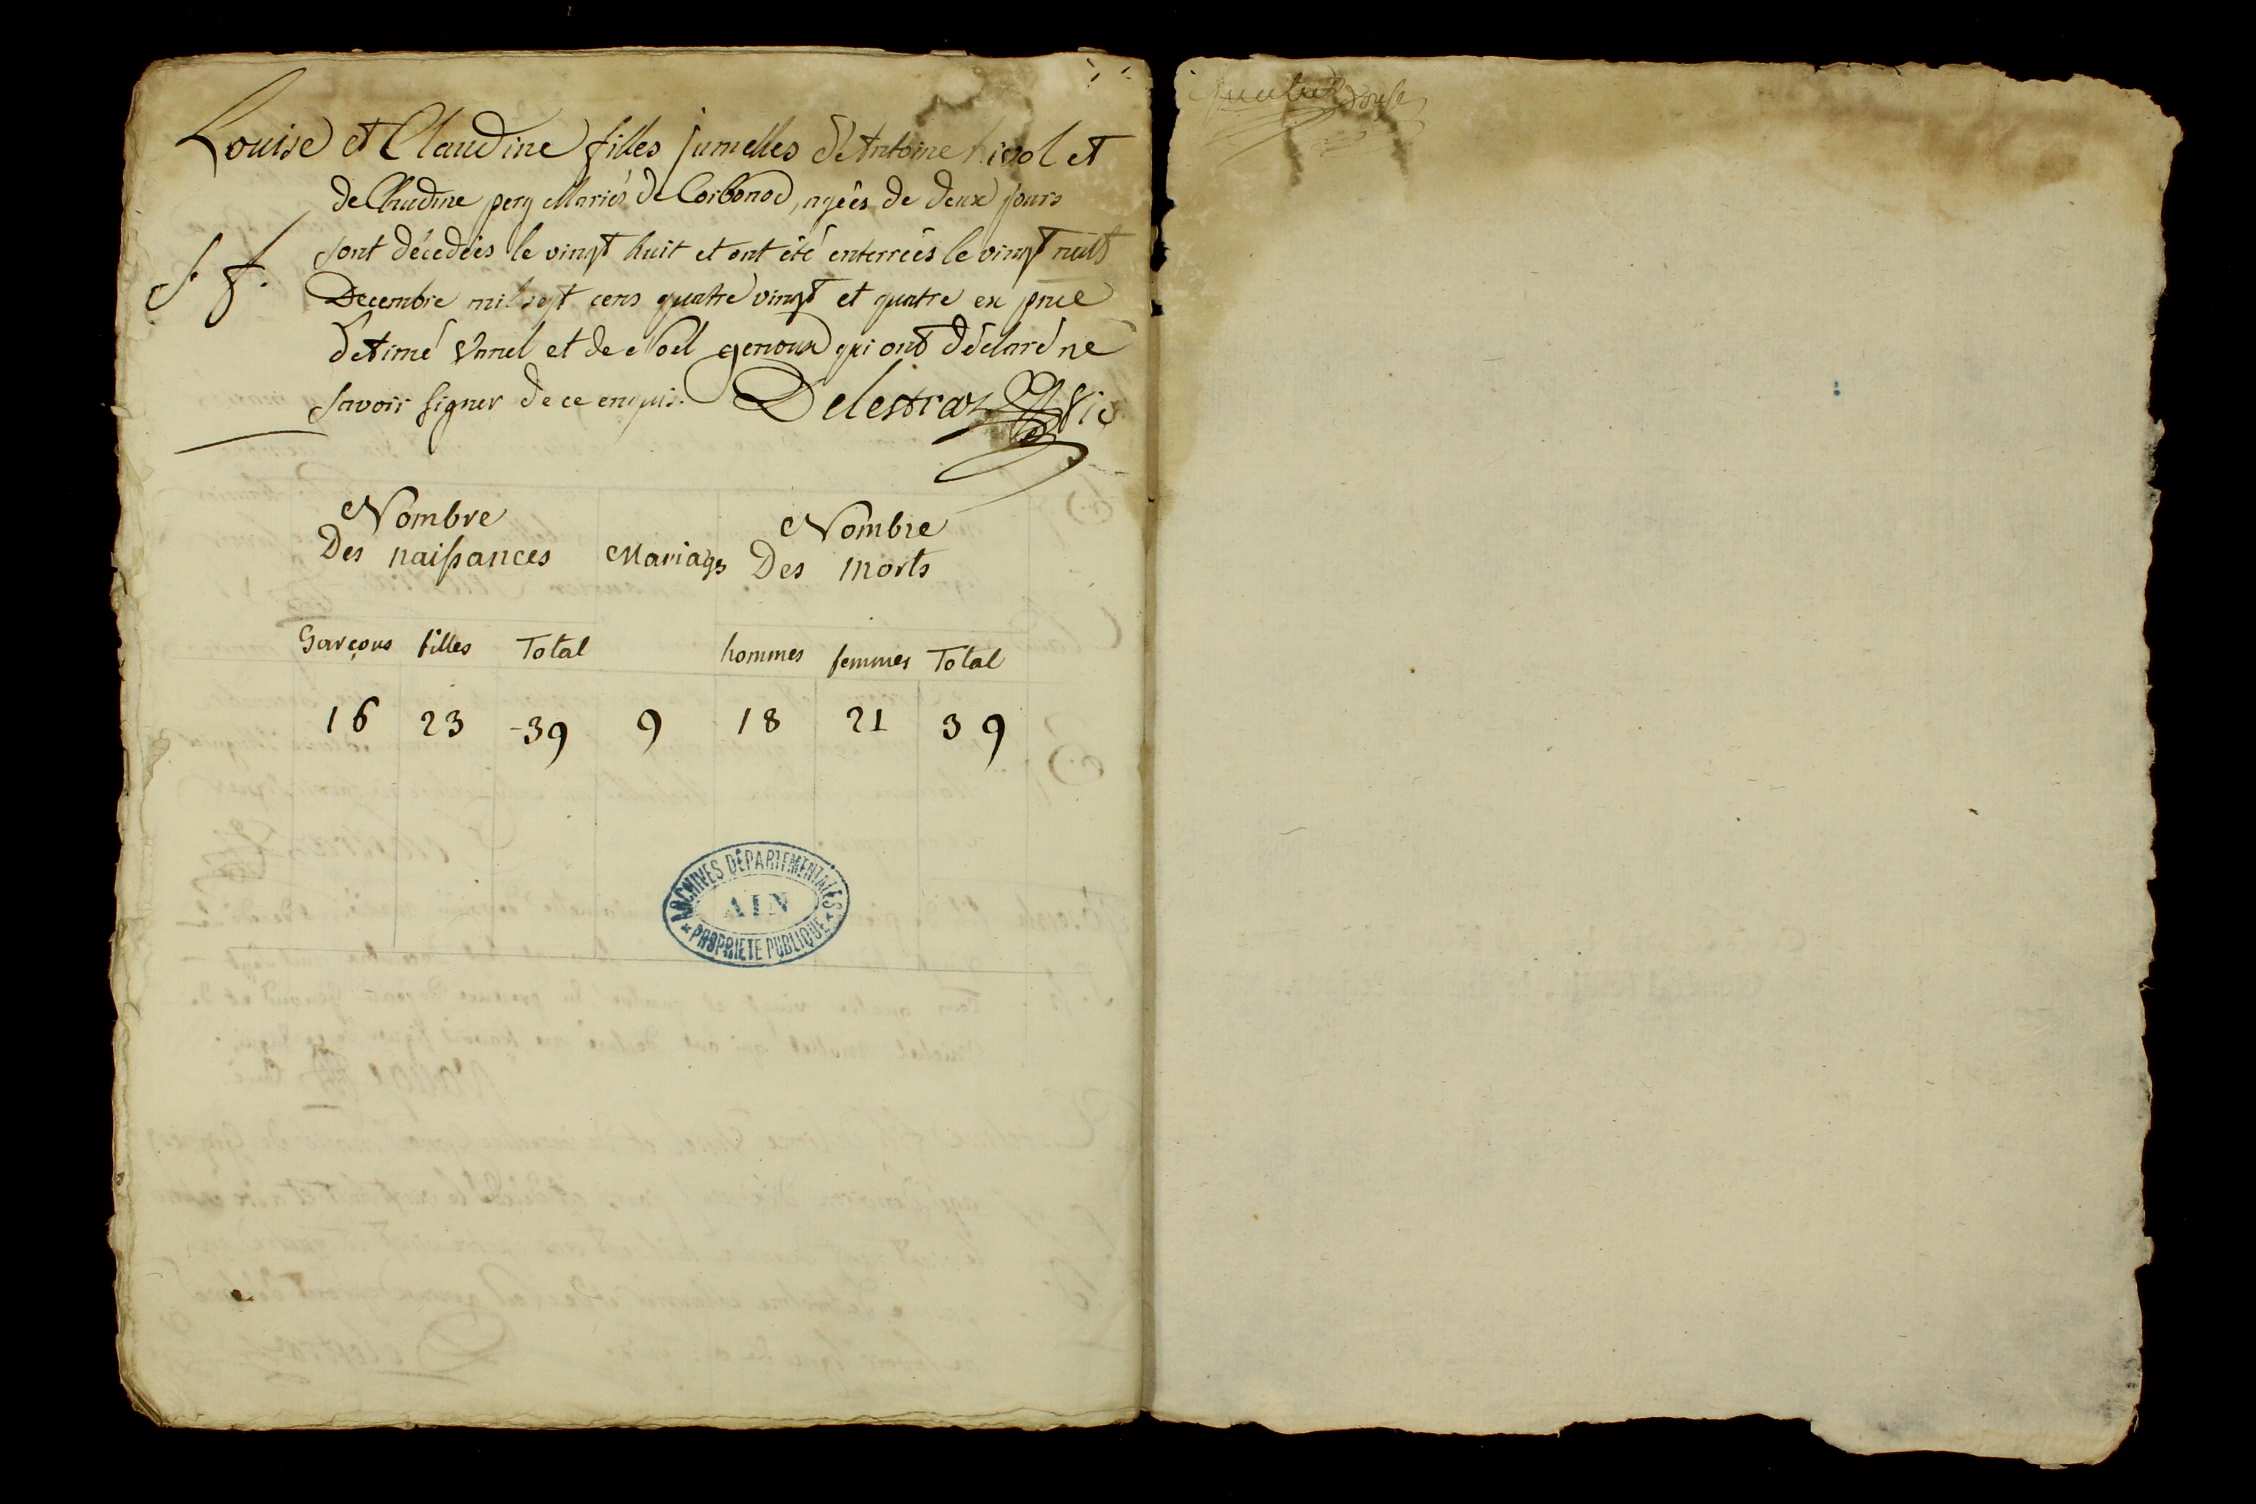 Louise et Claudine filles jumelles d'Antoine et
de Claudine pery Mariés de Corbonod, agées de deux jours
S. f.
sont décedées le vingt huit et ont été enterrées le vingt neuf
Decembre mil sept cens quatre vingt et quatre en pnce
d'Etimé Vanel et de Noel genoux qui ont déclaré ne
savoir signer de ce enquis. Delestraz Vic
Nombre
Des naissances
Mariages
Nombre
Des morts
Garçons filles Total hommes femmes Total
16 23 39 9 18 21 39
ARCHIVES DÉPARTEMENTALES
AIN
PROPRIETE PUBLIQUE